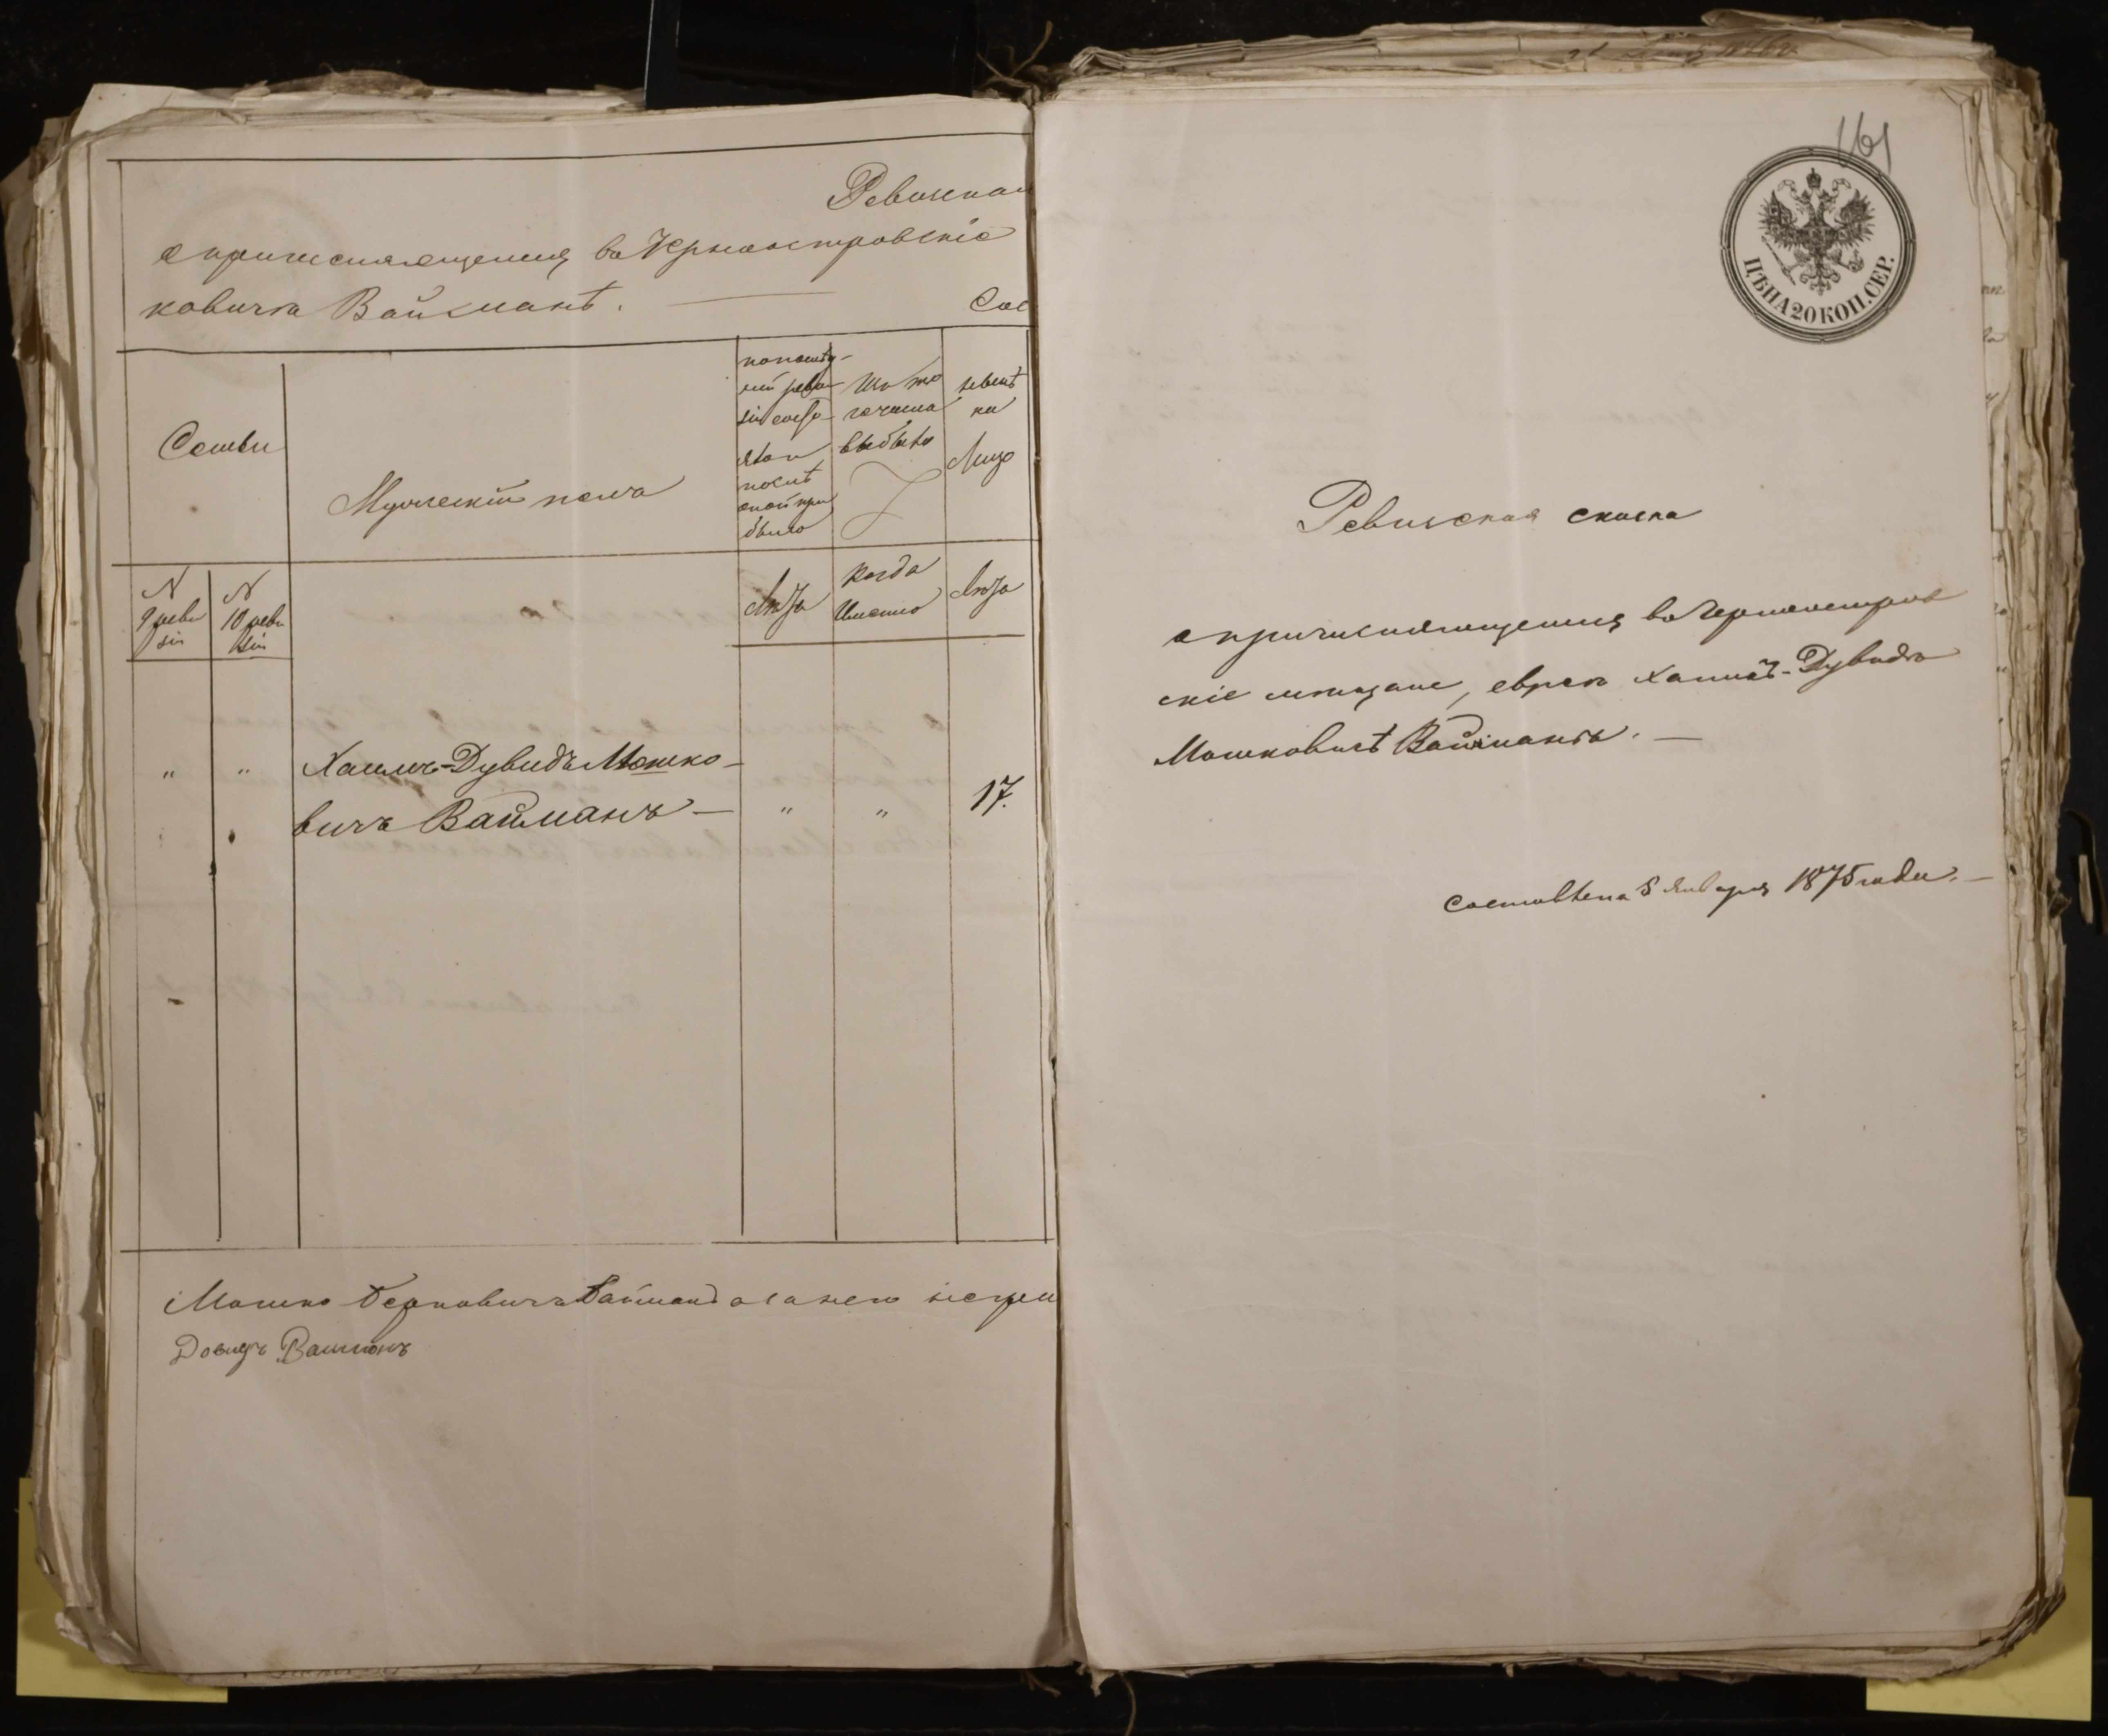 Ревизская
о причисляющемся въ Черноостровскіе
ковичѣ Вайсманѣ.
Сос
Семьи
Мужескій полъ
по послѣд-
ней реви-
зіи состо-
яло и
послѣ
оной при
было
Изъ то
го числа
выбыло
нынѣ
на
лицо
N
9 реви
зіи
N
10 реви
зіи
Лѣта
Когда
Имянно
Лѣта
" " Хаимъ-Дувидъ Мошко-
вичъ Вайсманъ — " " 17.
Мошко Берковичъ Вайсманъ а за него
Довидъ Вайсманъ
161
ЦѢНА 20 КОП. СЕР.
Ревизская сказка
о причисляющемся въ Черноостров
скіе мѣщане, евреѣ Хаимѣ-Дувидѣ
Мошковичѣ Вайсманѣ. —
Составлена 8 Января 1875 года. —